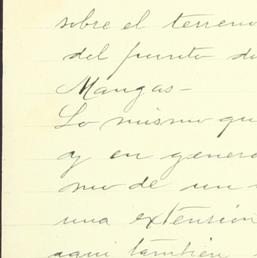 sobre el terreno
del punto de
Mangas-
Lo mismo que
y en genera
mo de un
una extensión
aqui también